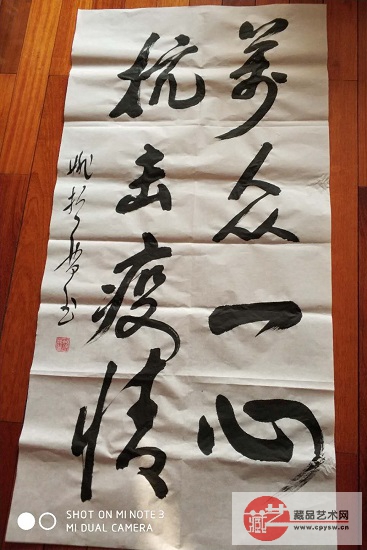 萬众一心
抗击疫情
SHOT ON MI NOTE 3
MI DUAL CAMERA
藏艺
藏品艺术网
www.cpysw.cn